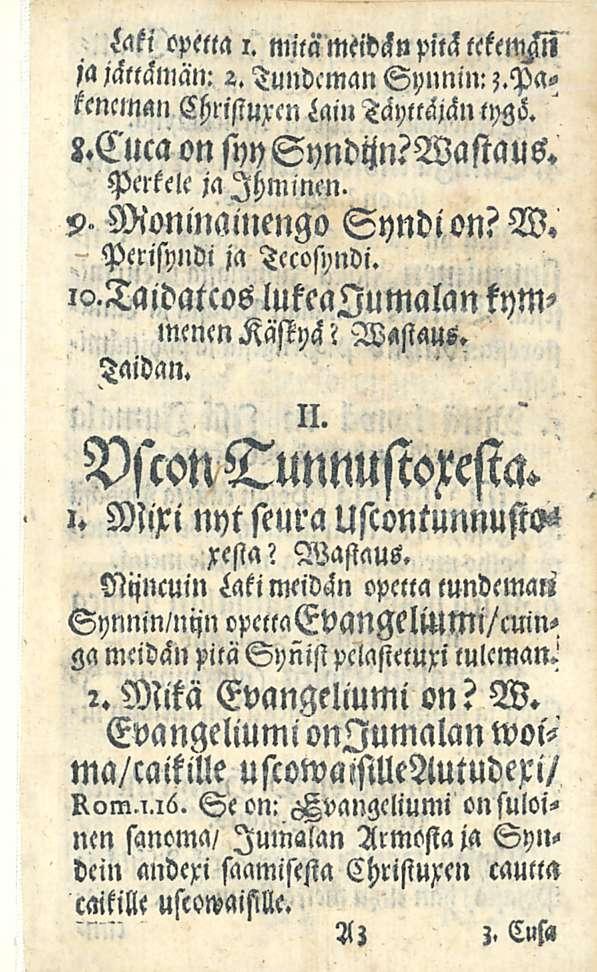 Laki opetta 1. mitä meidän pitä tekemän
ja jättämän: 2. Tundeman Synnin: 3. Pa-
keneman Christuxen Lain Täyttäjän tygö.
8. Cuca on syy Syndijn? Wastaus.
Perkele ja Ihminen.
9. Moninainengo Syndi on? W.
Perisyndi ja Tecosyndi.
10. Taidatcos lukea Jumalan kym-
menen Käskyä? Wastaus.
Taidan.
II.
Vscon Tunnustoxesta.
1. Mixi nyt seura Uscontunnusto-
xesta? Wastaus.
Nijncuin Laki meidän opetta tundeman
Synnin/ nijn opetta Evangeliumi/ cuin-
ga meidän pitä Syñist pelastetuxi tuleman.
2. Mikä Evangeliumi on? W.
Evangeliumi on Jumalan woi-
ma/ caikille uscowaisille Autudexi/
Rom. 1. 16. Se on: Evangeliumi on suloi-
nen sanoma/ Jumalan Armosta ja Syn-
dein andexi saamisesta Christuxen cautta
caikille uscowaisille.
A3 3. Cusa